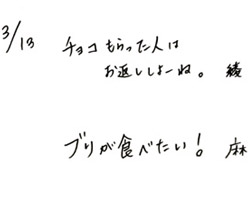 3/13 チョコもらった人は
お返ししよーね。 綾
ブリが食べたい! 麻